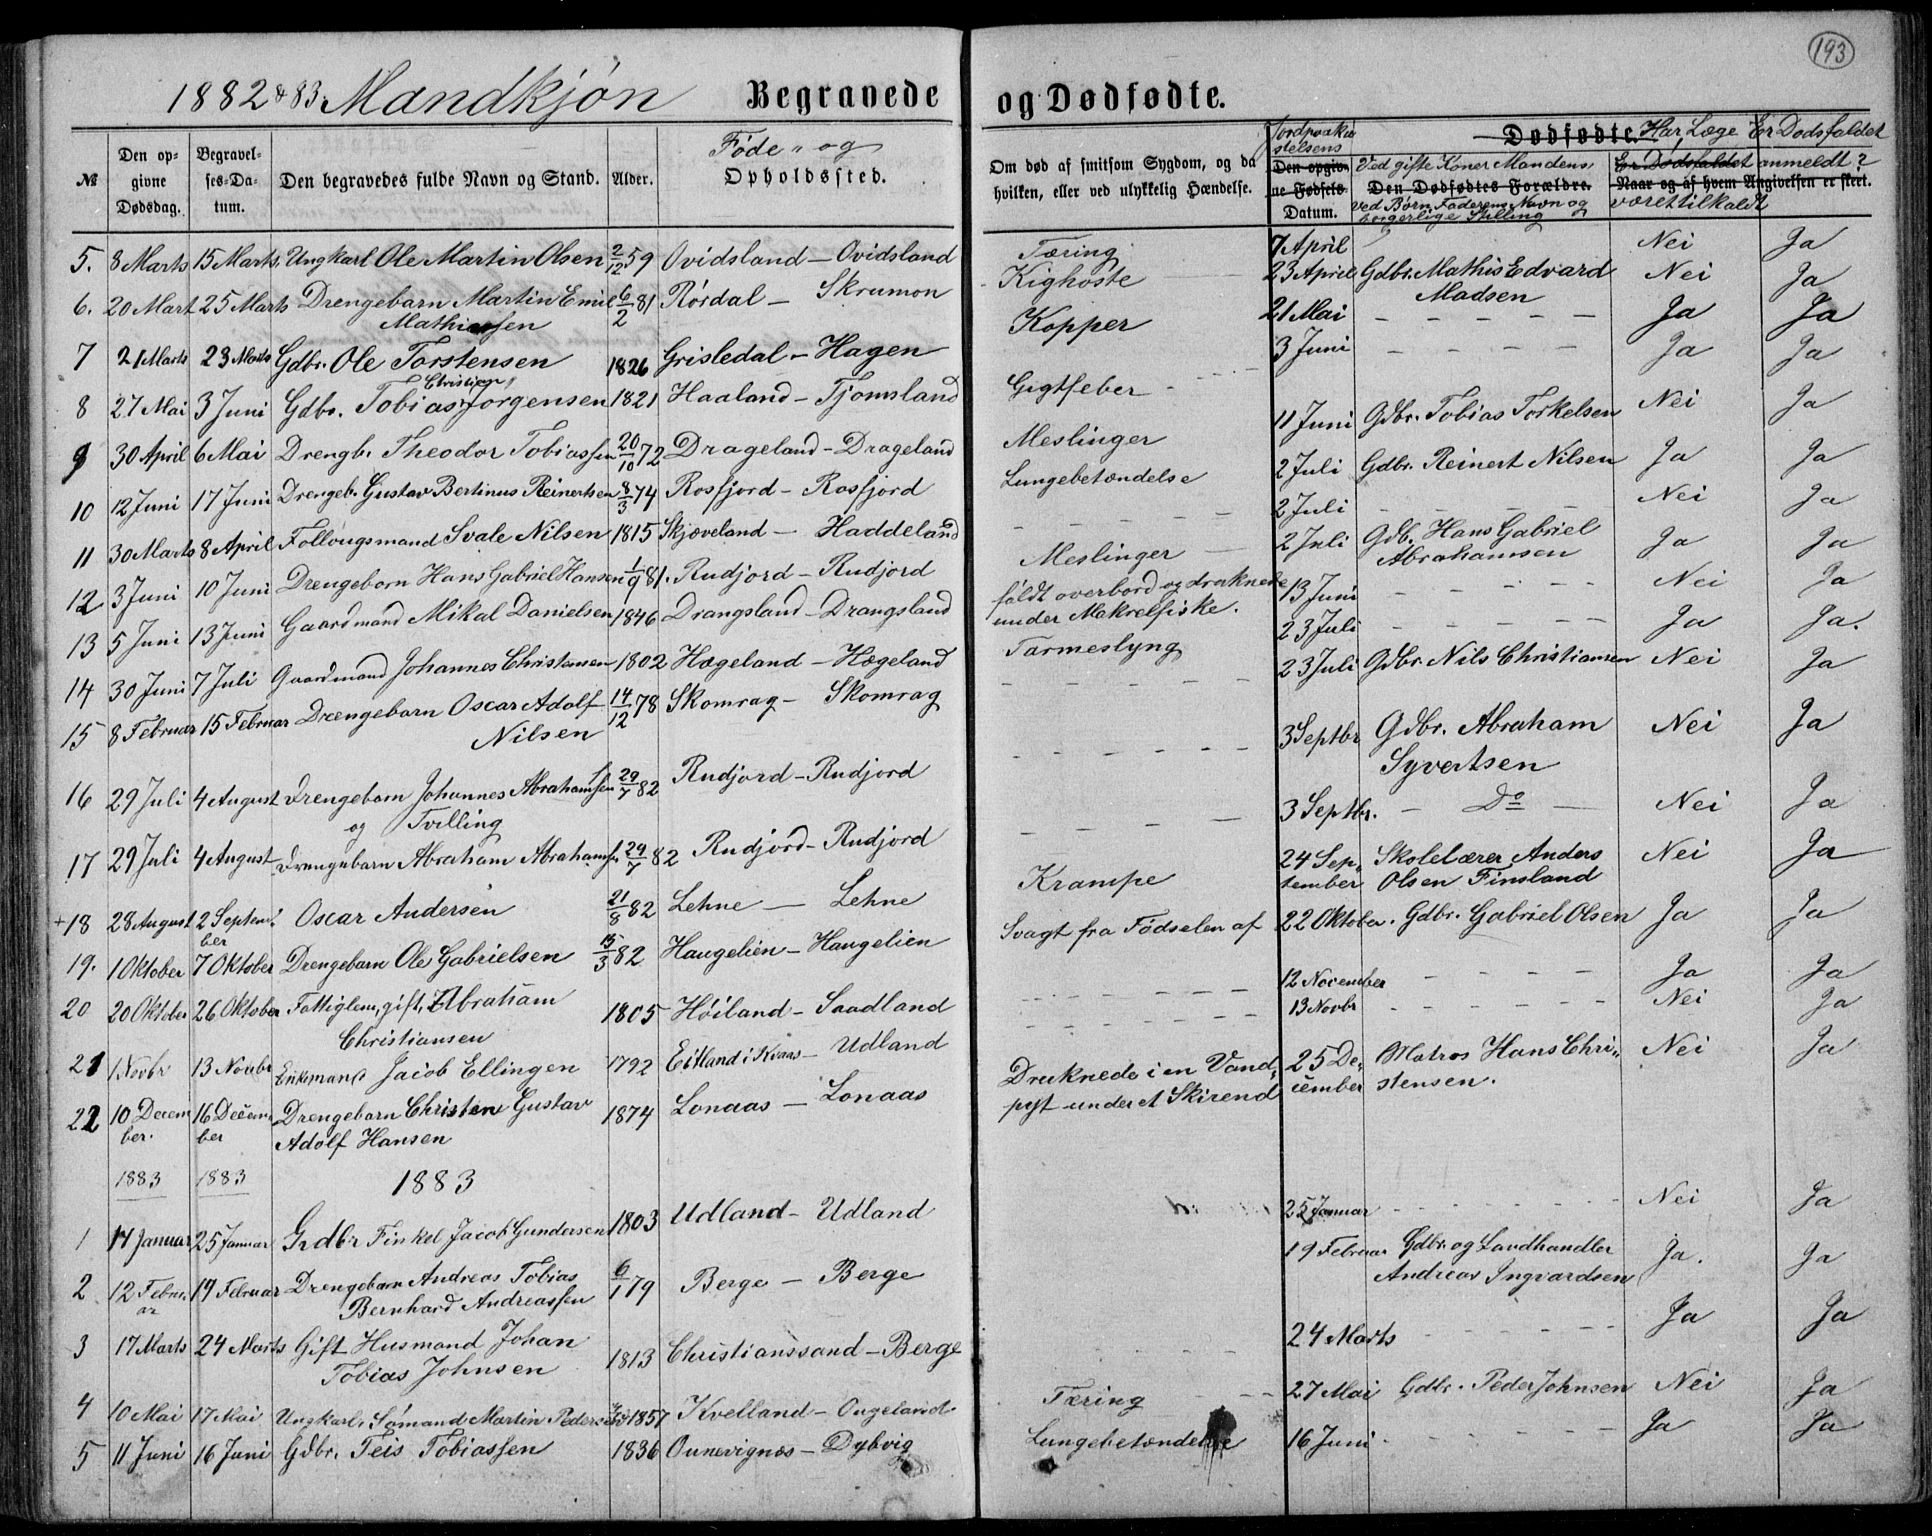 193
1882 & 83. Mandkjøn Begravede og Dødfødte.
№ Den opgivne Dødsdag. Begravelses-Datum. Den begravedes fulde Navn og Stand. Alder. Føde- og Opholdssted.
Om død af smitsom Sygdom, og da hvilken, eller ved ulykkelig Hændelse. Jordpaakastelsens Den opgivne Fødsels-Datum. Dødfødte. Ved gifte Koner Mandens, Den Dødfødtes Forældre. ved Børn Faderens Navn og borgerlige Stilling Har Læge Er Dødsfaldet anmeldt? Naar og af hvem Angivelsen er skeet. været tilkaldt Er Dødsfaldet
5. 8 Marts 15 Marts. Ungkarl Ole Martin Olsen 2/12 59 Ovidsland – Ovidsland Tæring 7 April Nei Ja
6. 20 Mart 25 Marts Drengebarn Martin Emil 6/2 81 Rørdal – Skrumon Kighoste 23 April Gdbr. Mathis Edvard Nei Ja
Mathiassen Madsen
7 21 Marts 23 Marts Gdbr. Ole Torstensen 1826 Grisledal – Hagen Kopper 21 Mai – – – – – Ja Ja
Christian
8 27 Mai 3 Juni Gdbr. Tobias Jørgensen 1821 Haaland – Tjomsland Gigtfeber 3 Juni – – – – – Ja Ja
9 30 April 6 Mai Drengb. Theodor Tobiassen 20/10 72 Drageland – Drageland Meslinger 11 Juni Gdbr. Tobias Torkelsen Nei Ja
10 12 Juni 17 Juni Drengeb. Gustav Bertinus Reinertsen 8/3 74 Rosfjord – Rosfjord Lungebetændelse 2 Juli Gdbr. Reinert Nilsen Ja Ja
11 30 Marts 8 April Follougsmand Svale Nilsen 1815 Skjæveland – Haddeland – – – – – 2 Juli – – – – Nei Ja
12 3 Juni 10 Juni Drengeborn Hans Gabriel Hansen 1/9 81. Rudjord – Rudjord Meslinger 2 Juli Gdb. Hans Gabriel Ja Ja
Abrahamsen
13 5 Juni 13 Juni Gaardmand Mikal Danielsen 1846 Drangsland – Drangsland faldt overbord og druknede 13 Juni – – – – – Nei Ja
under Makrelfiske.
14 30 Juni 7 Juli Gaardmand Johannes Christensen 1802 Hægeland – Hægeland Tarmeslyng 23 Juli – – – – – Ja Ja.
15 8 Februar 15 Februar Drengebarn Oscar Adolf 14/12 78 Skomrag – Skomrag – – – – – 23 Juli Gdbr Nils Christiansen Nei Ja
Nilsen
16 29 Juli 4 August Drengebarn Johannes Abrahamsen 29/7 82 Rudjord – Rudjord – – – – – 3 Septbr Gdbr. Abraham Nei Ja
og Tvilling Syvertsen
17 29 Juli 4 August Drengebarn Abraham Abrahamsen 29/7 82 Rudjord – Rudjord – – – – – 3 Septbr. – Do – Nei Ja
+18 28 August 2 Septem- Oscar Andersen 21/8 82 Lehne – Lehne Krampe 24 Sep- Skolelærer Anders Nei Ja
ber tember Olsen Finsland
19. 1 Oktober 7 Oktober Drengebarn Ole Gabrielsen 15/3 82 Haugelien – Haugelien Svagt fra Fødselen af 22 Oktober. Gdbr. Gabriel Olsen Ja Ja
20 20 Oktober 26 Oktober Fattiglem, gift, Abraham 1805 Høiland – Saadland – – – – – 12 November – – – – Ja Ja
Christiansen
21 1 Novbr 13 Novbr Enkemand Jacob Ellingen 1792 Eitland i Kvaas – Udland – – – – – 13 Novbr – – – – – Nei Ja
22 10 Decem 16 Decem- Drengebarn Christen Gustav 1874 Lonaas – Lonaas Druknede i en Vand- 25 De- Matros Hans Chri- Nei Ja
ber. ber Adolf Hansen pyt under et Skirend cember stensen.
1883 1883 1883
1 17 Januar 25 Januar Grdbr Finkel Jacob Gundersen 1803 Udland – Udland 25 Januar – – – – – Nei Ja
2 12 Febru- 19 Februar Drengebarn Andreas Tobias 6/1 79 Berge – Berge 19 Februar Gdbr. og Landhandler Ja. Ja
ar Bernhard Andreassen Andreas Ingvardsen
3 17 Marts 24 Marts Gift Husmand Johan 1813 Christianssand – Berge 24 Marts – – – – – Ja Ja
Tobias Johnsen
4 10 Mai 17 Mai Ungkarl, Sømand Martin Pedersen 1857 Kvelland – Ougeland Tæring 27 Mai Gdbr. Peder Johnsen Nei Ja
5 11 Juni 16 Juni Gdbr. Teis Tobiassen 1836 Ounevignæs – Dybvig Lungebetændelse 16 Juni – – – – – Ja Ja